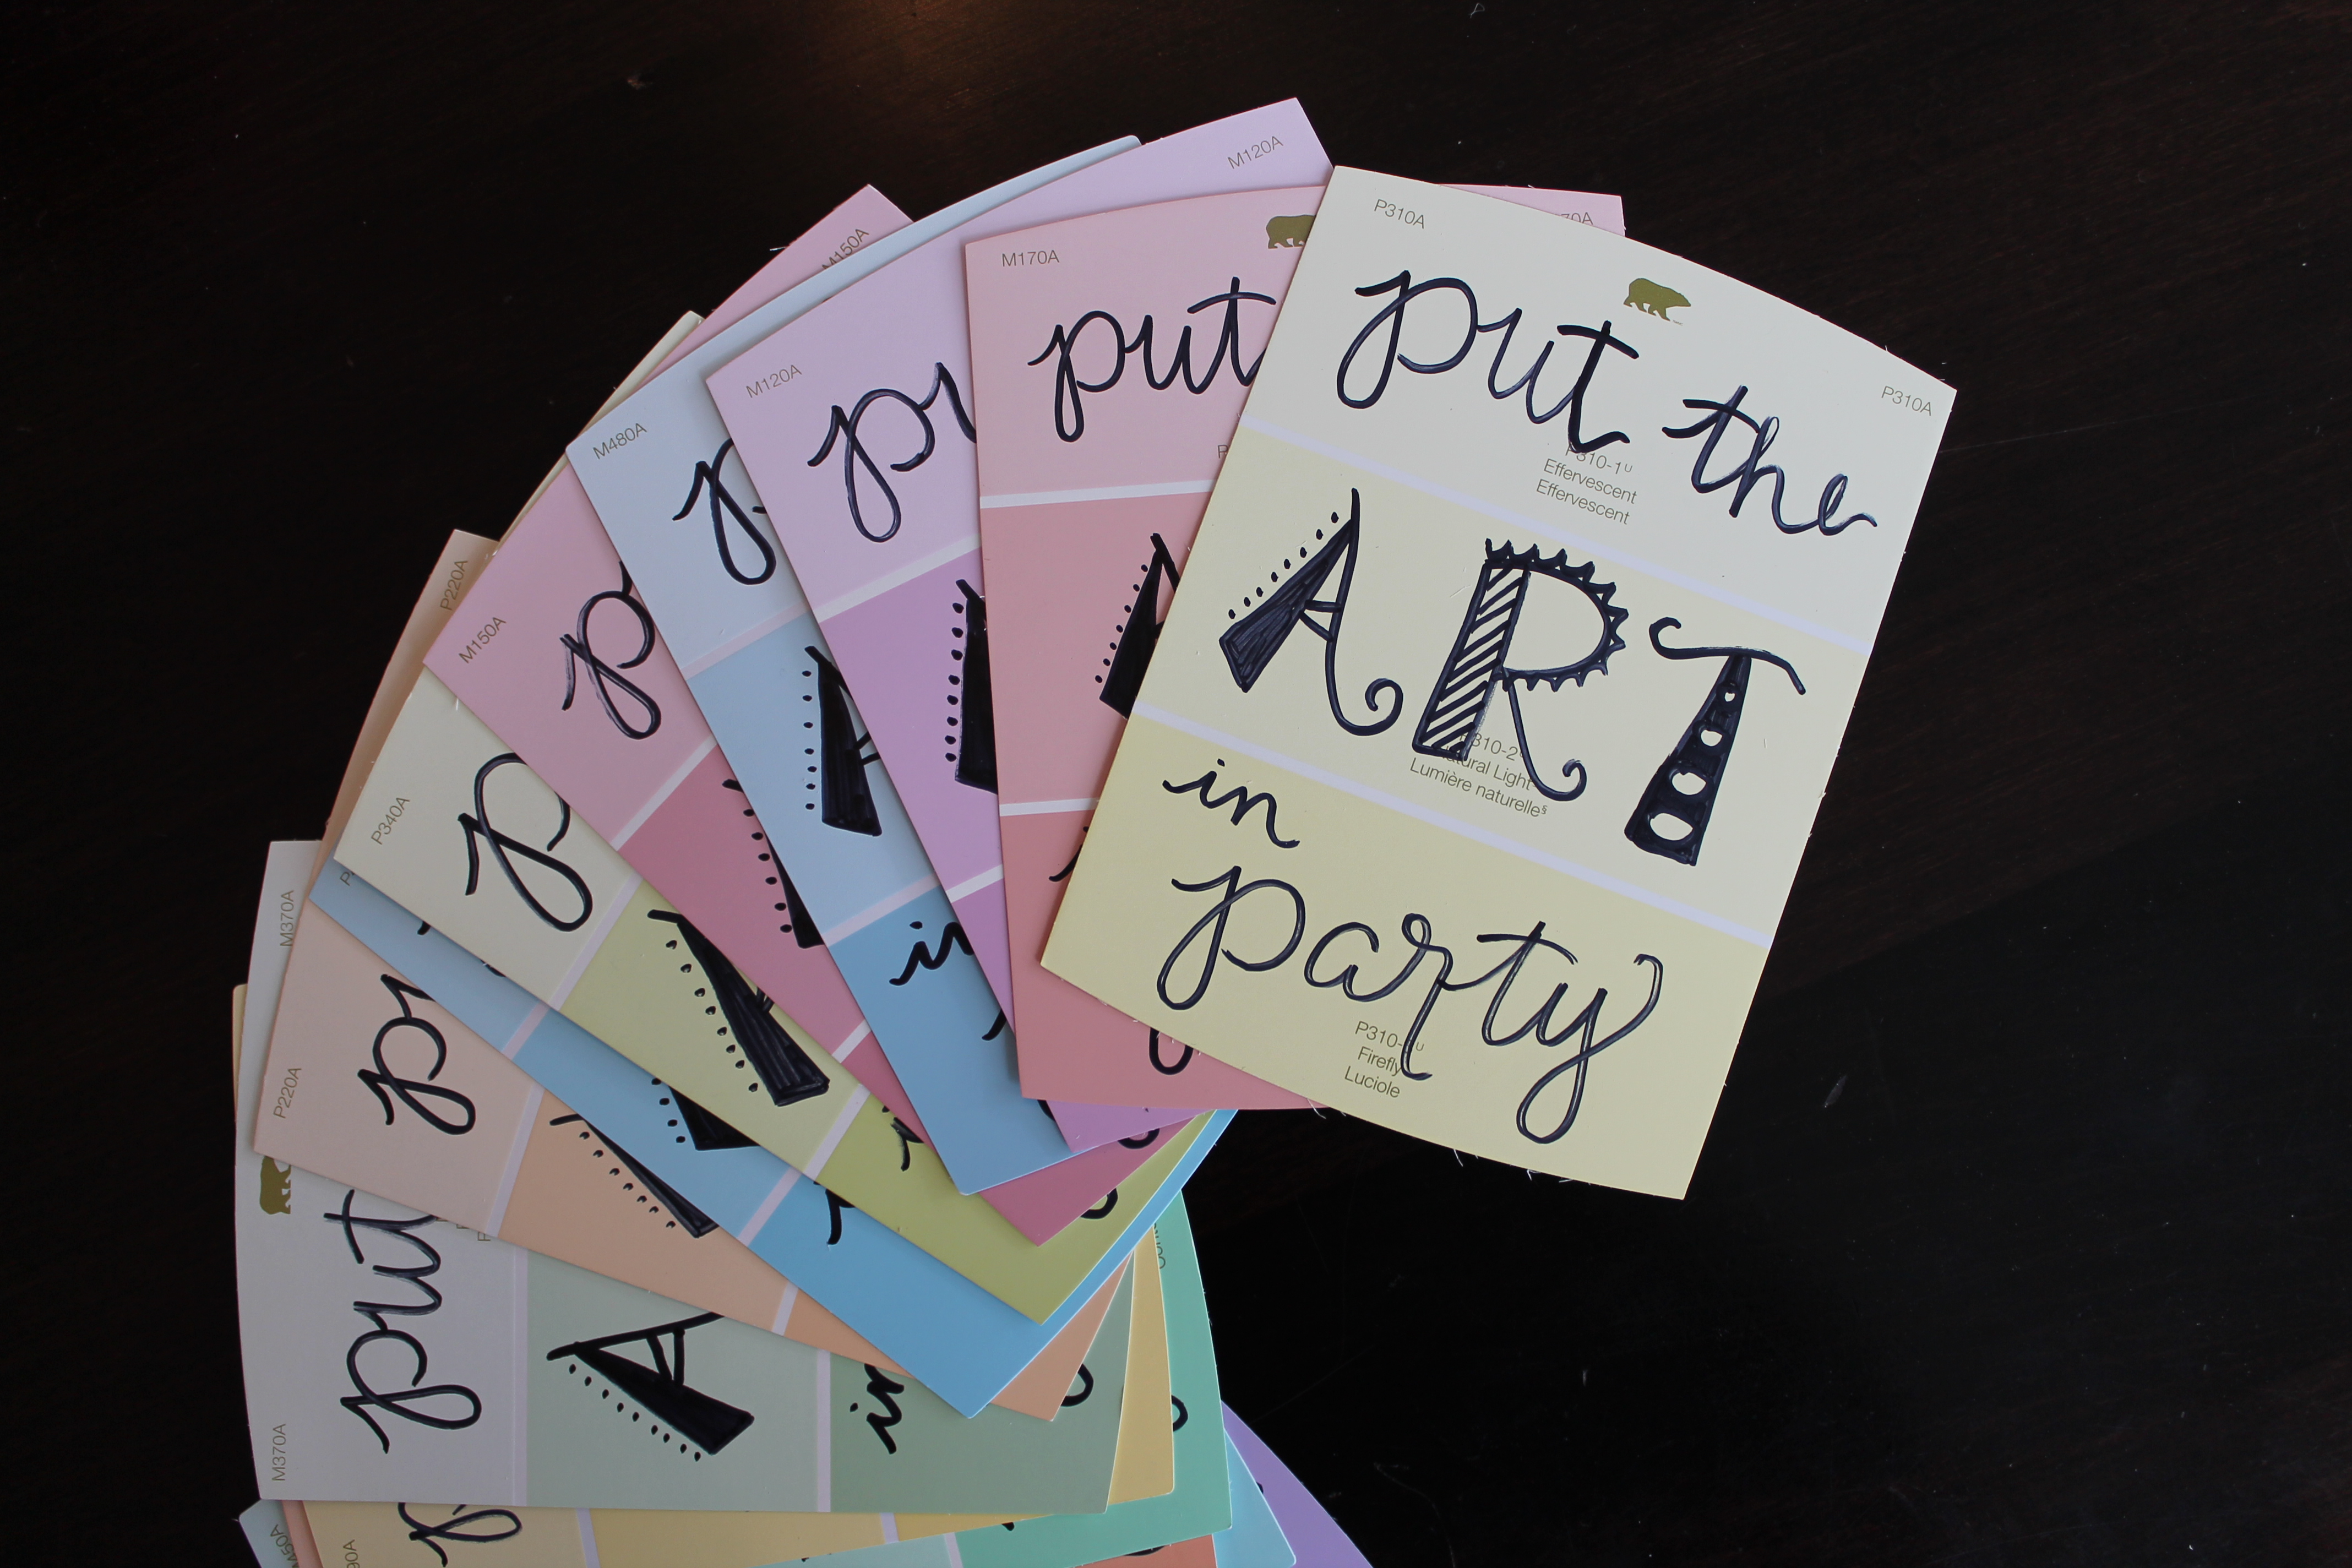 P310A
P310A
put the
P310-1ᵁ
Effervescent
Effervescent
ART
310-2
Natural Light
Lumière naturelle§
in
party
P310-
Firefly
Luciole
70A
M170A
put
M120A
M120A
M480A
M150A
M150A
in
P340A
P220A
P220A
M370A
M370A
put
A
in